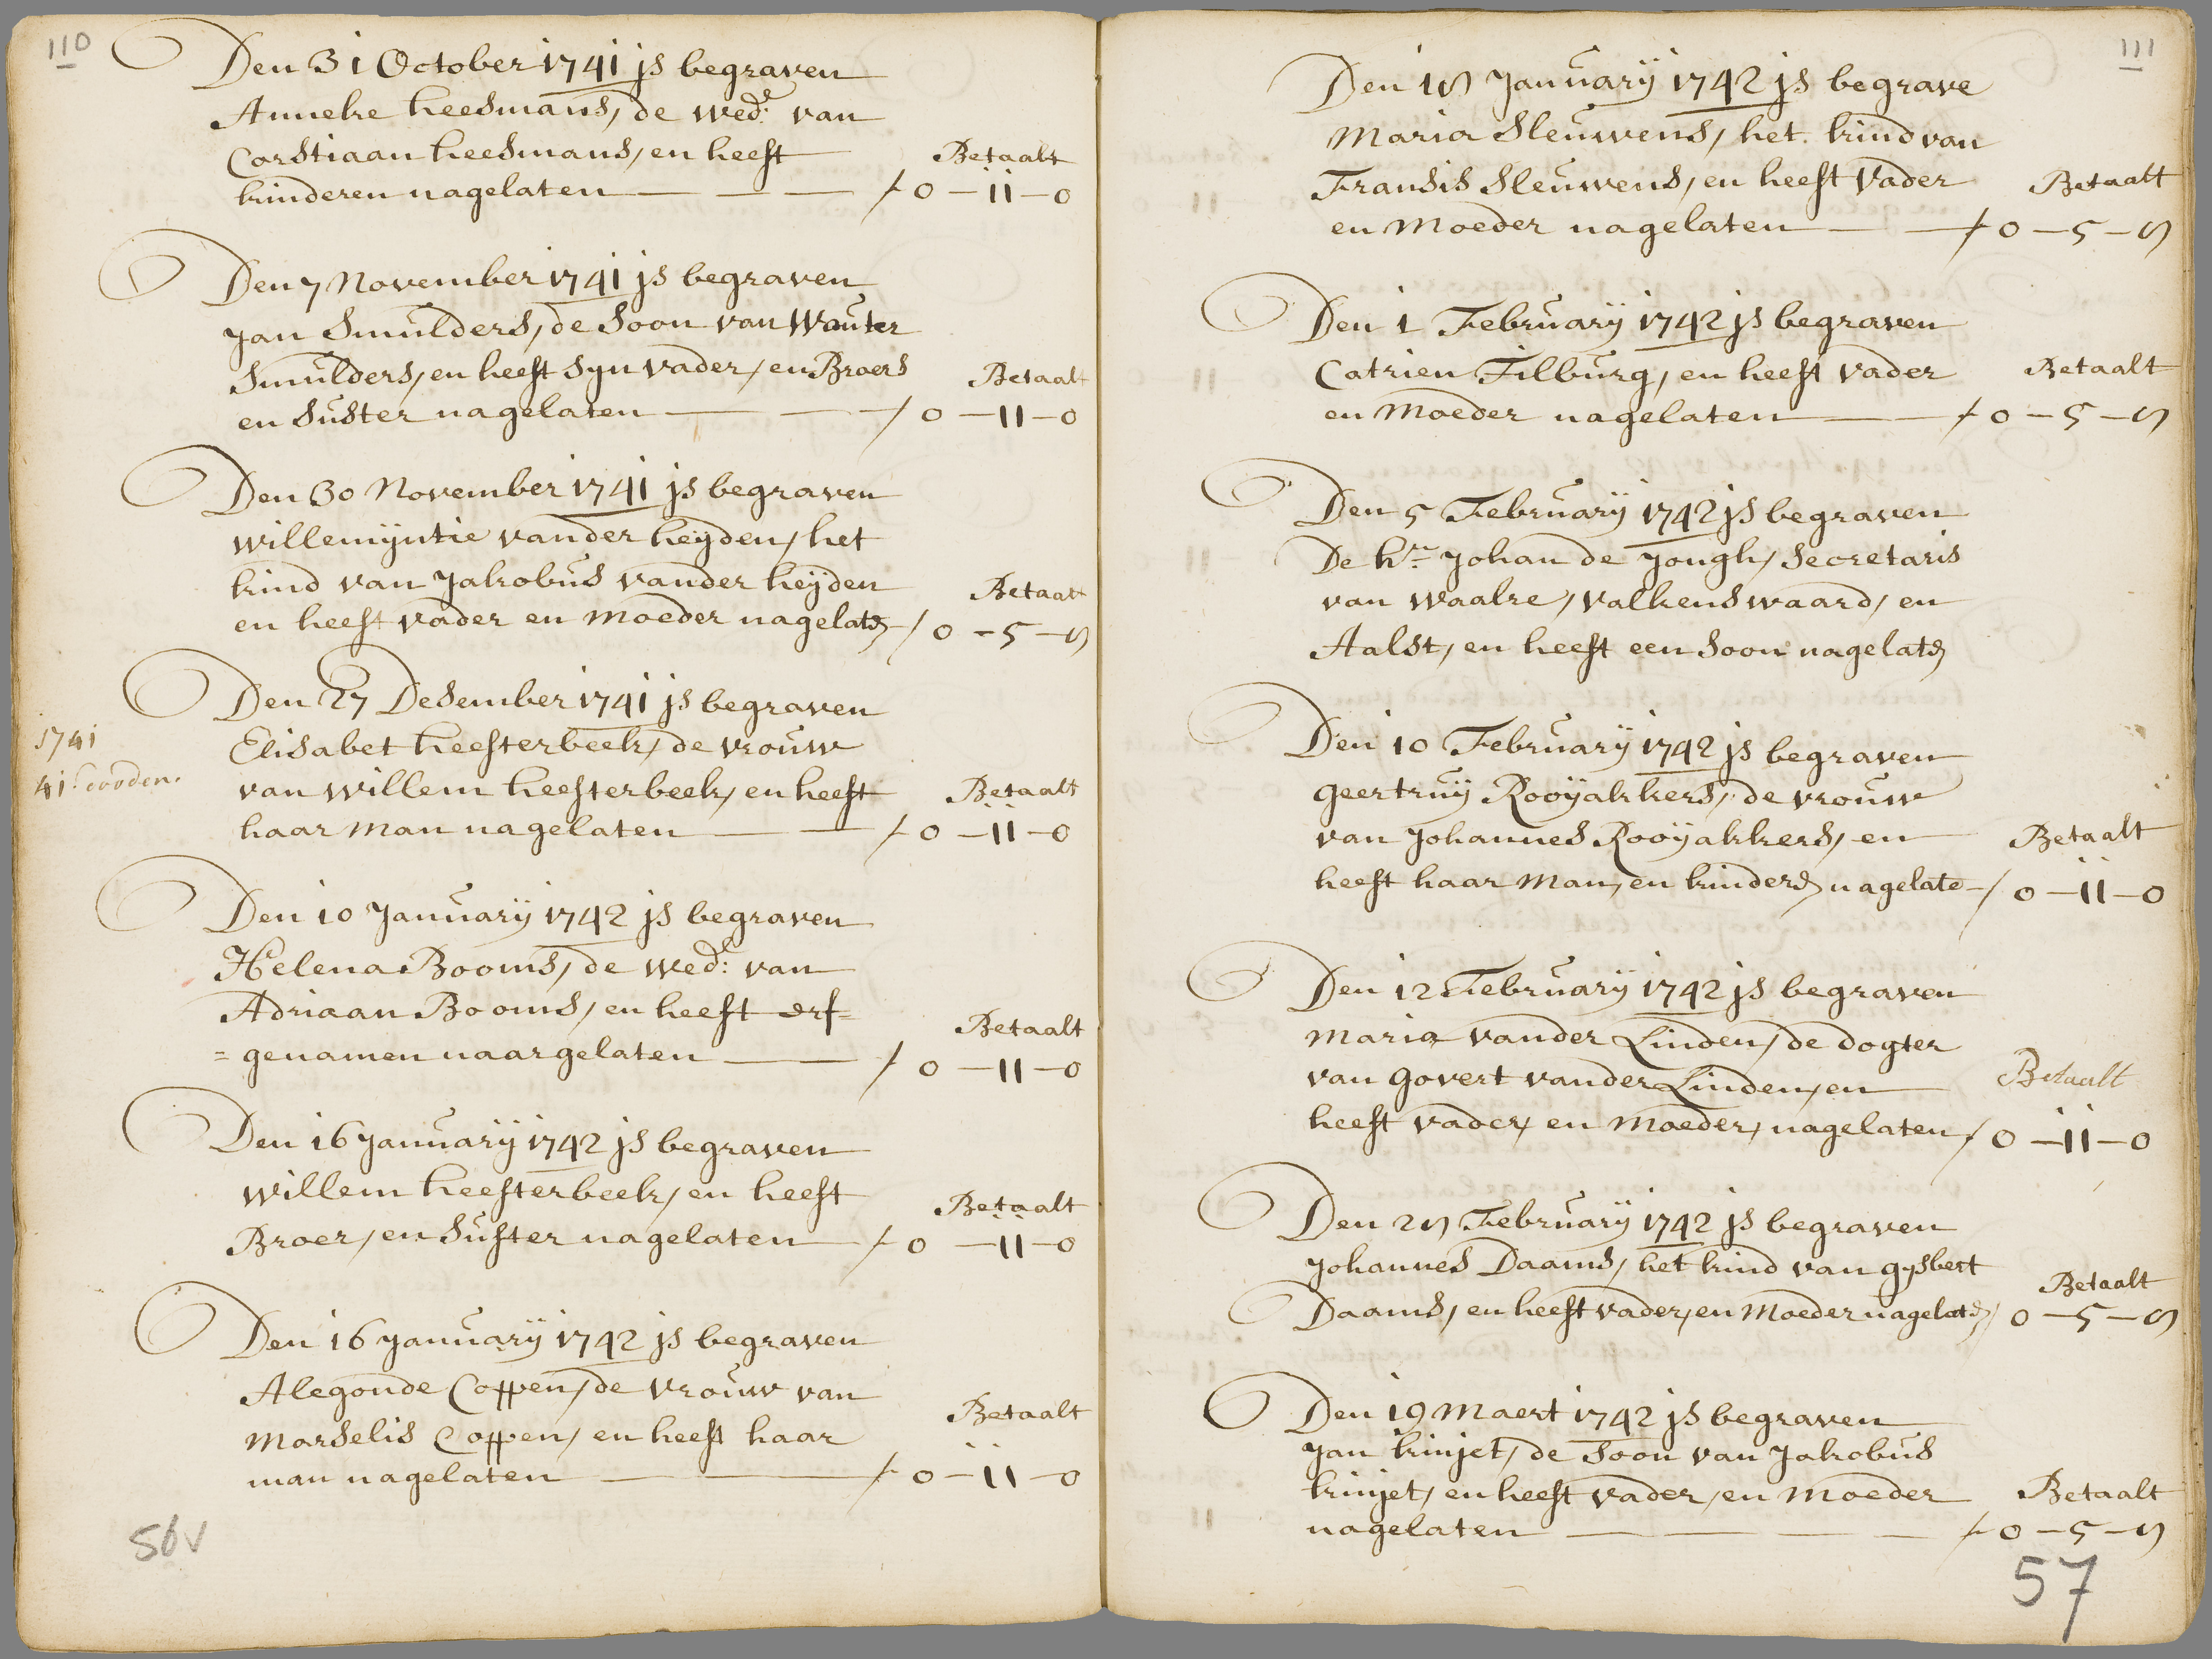 110
Den 31 October 1741 js begraven
Anneke heesmans, de wed: van
Corstiaan heesmans, en heeft
Betaalt
kinderen nagelaten — — — / 0 – 11 – 0
Den 7 November 1741 js begraven
Jan Smulders, de Soon van Wouter
Smulders, en heeft Syn vader, en Broers
Betaalt
en Suster nagelaten — — / 0 – 11 – 0
Den 30 November 1741 js begraven
willemijntie vander heijden, het
kind van Jakobus vander heijden
Betaalt
en heeft vader en moeder nagelat / 0 – 5 – 8
Den 27 Desember 1741 js begraven
1741
Elisabet heesterbeek, de vrouw
41 dooden.
van willem heesterbeek, en heeft
Betaalt
haar man nagelaten — — / 0 – 11 – 0
Den 10 Januarij 1742 js begraven
Helena Booms, de wed: van
Adriaan Booms, en heeft erf=
Betaalt
=genamen naargelaten — / 0 – 11 – 0
Den 16 Januarij 1742 js begraven
willem heesterbeek, en heeft
Betaalt
Broer, en Suster nagelaten / 0 – 11 – 0
Den 16 Januarij 1742 js begraven
Alegonde Coppen, de vrouw van
Marselis Coppen, en heeft haar
Betaalt
man nagelaten — — / 0 – 11 – 0
56v
111
Den 18 Januarij 1742 js begrave
Maria Sleuwens, het kind van
Fransis Sleuwens, en heeft vader
Betaalt
en Moeder nagelaten — — / 0 – 5 – 8
Den 1 Februarij 1742 js begraven
Catrien Tilburg, en heeft vader
Betaalt
en Moeder nagelaten — / 0 – 5 – 8
Den 5 Februarij 1742 js begraven
De hr Johan de Jongh, Secretaris
van waalre, valkenswaard, en
Aalst, en heeft een Soon nagelat
Den 10 Februarij 1742 js begraven
geertruij Rooijakkers, de vrouw
van Johannes Rooijakkers, en
Betaalt
heeft haar man, en kinder nagelate / 0 – 11 – 0
Den 12 Februarij 1742 js begraven
Maria vander Linden, de dogter
van govert vander Linden, en
Betaalt
heeft vader, en moeder, nagelaten / 0 – 11 – 0
Den 28 Februarij 1742 js begraven
Johannes Daams, het kind van gysbert
Betaalt
Daams, en heeft vader, en Moeder nagelat / 0 – 5 – 8
Den 19 Maert 1742 js begraven
Jan kinjet, de Soon van Jakobus
kinjet, en heeft vader, en moeder
Betaalt
nagelaten — — — / 0 – 5 – 8
57